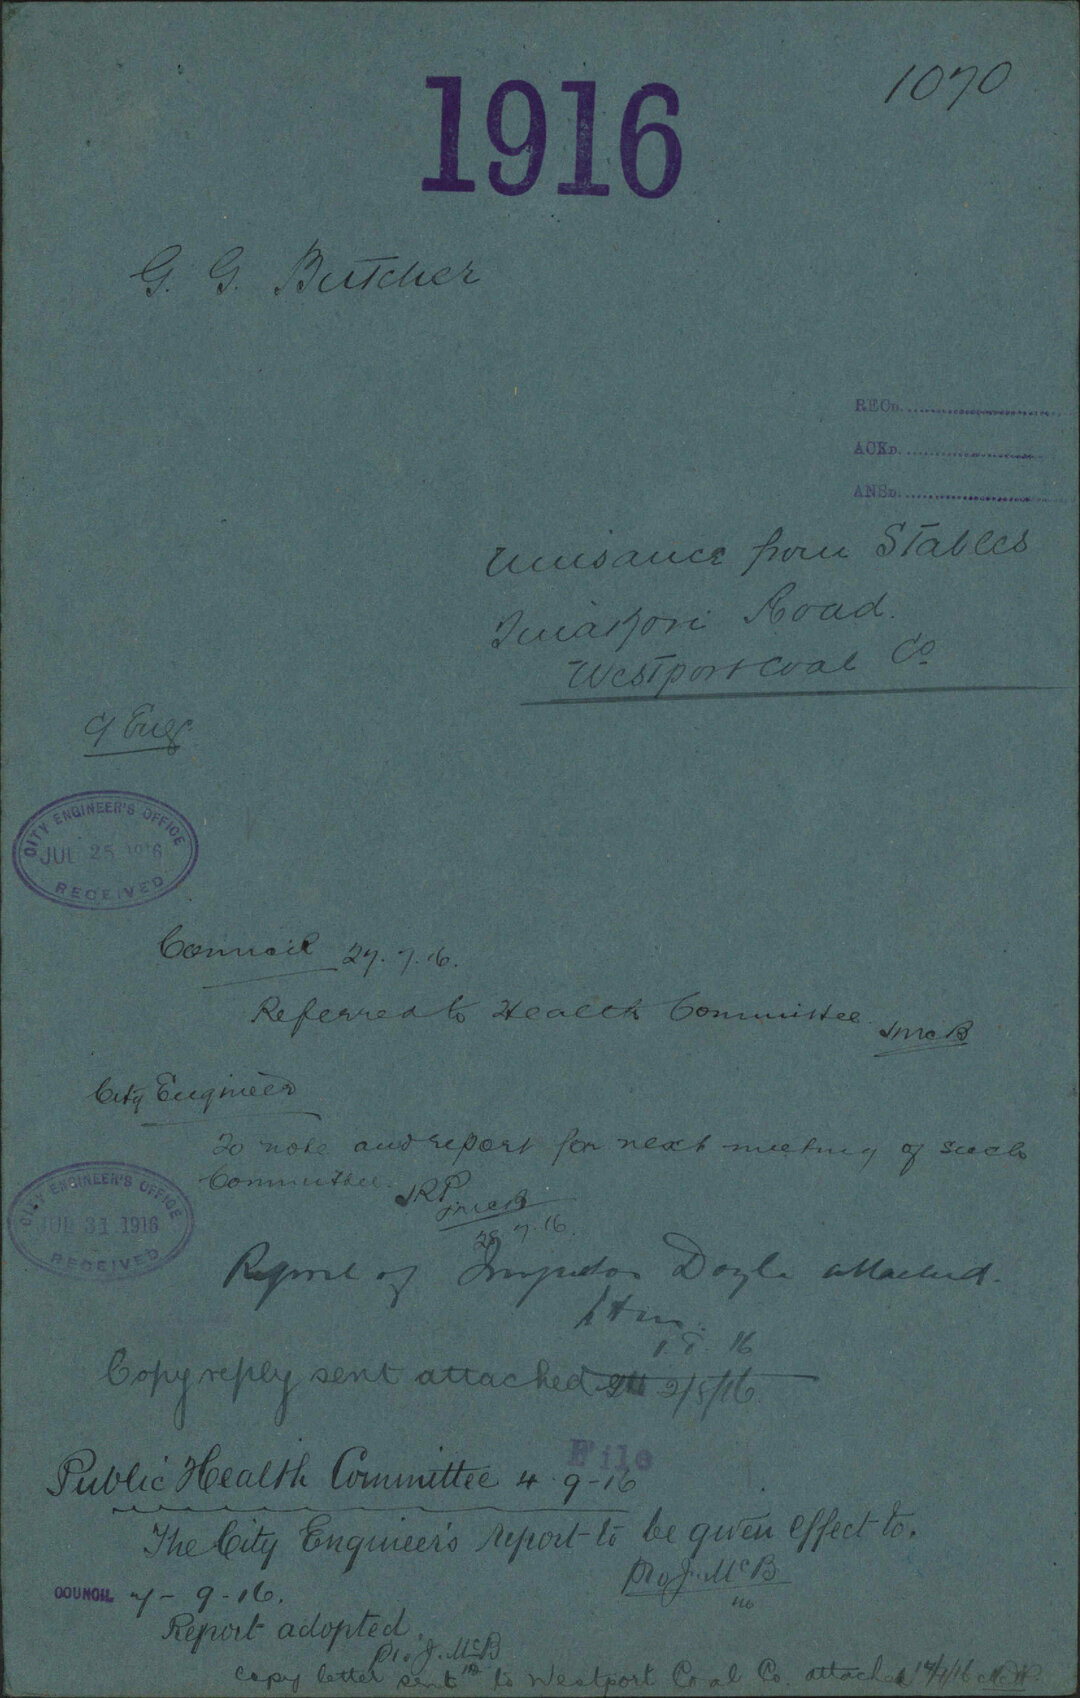 1070
1916
G. G. Butcher
RECD.
ACKD.
ANSD.
nuisance from Stables
Tinakori Road.
Westport Coal Co
Cy Eng
CITY ENGINEER'S OFFICE
JUL 25 1916
RECEIVED
Council 27.7.16.
Referred to Health Committee JMcB
City Engineer
To note and report for next meeting of such
Committee. JRP
JMcB
28.7.16.
CITY ENGINEER'S OFFICE
JUL 31 1916
RECEIVED
Report of Inspector Doyle attached.
1.8.16
Copy reply sent attached 2/8/16
File
Public Health Committee 4-9-16
The City Engineer's report to be given effect to.
Pro J. McB
COUNCIL 7-9-16.
Report adopted.
Pro. J. McB
Copy letter sent to Westport Coal Co. attached